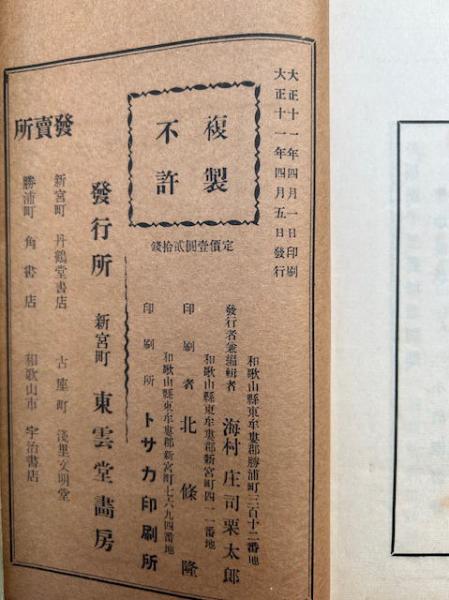 大正十一年四月一日印刷
大正十一年四月五日發行
複製
不許
定價壹圓貳拾錢
和歌山縣東牟婁郡勝浦町三百十二番地
發行者兼編輯者 海村庄司栗太郎
和歌山縣東牟婁郡新宮町四一一番地
印刷者 北條隆
和歌山縣東牟婁郡新宮町七六九四番地
印刷所 トサカ印刷所
發行所 新宮町 東雲堂畵房
發賣所
新宮町 丹鶴堂書店
古座町 淺里文明堂
勝浦町 角書店
和歌山市 宇治書店